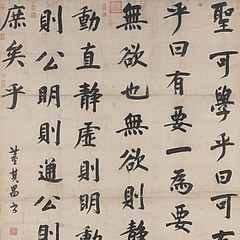 聖可學乎曰可
乎曰有要一為要
無欲也無欲則靜
動直靜虛則明
則公明則通公
庶矣乎
董其昌書